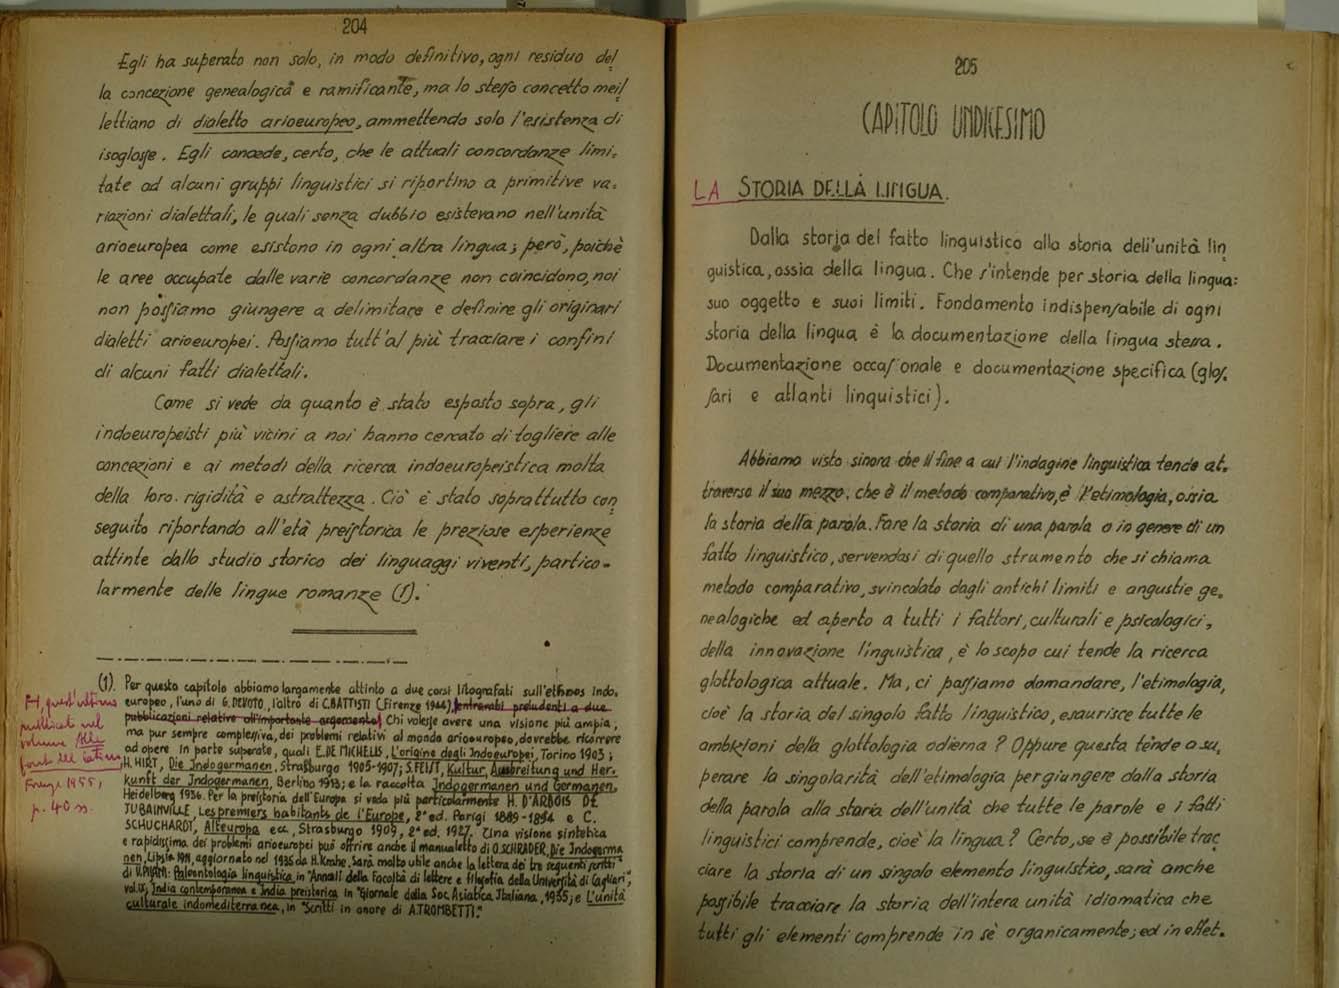 204
Egli ha superato non solo, in modo definitivo, ogni residuo del
la concezione genealogica e ramificante, ma lo stesso concetto meil
lettiano di dialetto arioeuropeo, ammettendo solo l'esistenza di
isoglosse. Egli concede, certo, che le attuali concordanze limi-
tate ad alcuni gruppi linguistici si riportino a primitive va-
riazioni dialettali, le quali senza dubbio esistevano nell'unità
arioeuropea come esistono in ogni altra lingua; però, poichè
le aree occupate dalle varie concordanze non coincidono, noi
non possiamo giungere a delimitare e definire gli originari
dialetti arioeuropei. Possiamo tutt'al più tracciare i confini
di alcuni fatti dialettali.
Come si vede da quanto è stato esposto sopra, gli
indoeuropeisti più vicini a noi hanno cercato di togliere alle
concezioni e ai metodi della ricerca indoeuropeistica molta
della loro rigidità e astrattezza. Ciò è stato soprattutto con
seguito riportando all'età preistorica le preziose esperienze
attinte dallo studio storico dei linguaggi viventi, partico-
larmente delle lingue romanze (1).
(1). Per questo capitolo abbiamo largamente attinto a due corsi litografati sull'ethnos Indo-
europeo, l'uno di G. DEVOTO, l'altro di C. BATTISTI (Firenze 1944), entrambi preludenti a due
pubblicazioni relative all'importante argomento. Chi volesse avere una visione più ampia,
ma pur sempre complessiva, dei problemi relativi al mondo arioeuropeo, dovrebbe ricorrere
ad opere in parte superate, quali E. DE MICHELIS, L'origine degli Indoeuropei, Torino 1903;
H. HIRT, Die Indogermanen, Strasburgo 1905-1907; S. FEIST, Kultur, Ausbreitung und Her-
kunft der Indogermanen, Berlino 1913; e la raccolta Indogermanen und Germanen,
Heidelberg 1936. Per la preistoria dell'Europa si veda più particolarmente H. D'ARBOIS DE
JUBAINVILLE, Les premiers habitants de l'Europe, 2ª ed. Parigi 1889-1894 e C.
SCHUCHARDT, Alteuropa ecc., Strasburgo 1909, 2ª ed. 1927. Una visione sintetica
e rapidissima dei problemi arioeuropei può offrire anche il manualetto di O. SCHRADER, Die Indogerma
nen, Lipsia 1911, aggiornato nel 1935 da H. Krahe. Sarà molto utile anche la lettera dei tre seguenti scritti
di V. PISANI: Paleontologia linguistica, in "Annali della Facoltà di lettere e filosofia della Università di Cagliari",
vol. IX, India contemporanea e India preistorica in "Giornale della Soc. Asiatica Italiana, 1935; e L'unità
culturale indomediterranea, in "Scritti in onore di A. TROMBETTI."
quest'ultimo
pubblicato nel
volume Alle
fonti del latino
Firenze 1955,
p. 40 ss.
205
CAPITOLO UNDICESIMO
LA STORIA DELLA LINGUA.
Dalla storia del fatto linguistico alla storia dell'unità lin
guistica, ossia della lingua. Che s'intende per storia della lingua:
suo oggetto e suoi limiti. Fondamento indispensabile di ogni
storia della lingua è la documentazione della lingua stessa.
Documentazione occasionale e documentazione specifica (glos-
sari e atlanti linguistici).
Abbiamo visto sinora che il fine a cui l'indagine linguistica tende at-
traverso il suo mezzo, che è il metodo comparativo, è l'etimologia, ossia
la storia della parola. Fare la storia di una parola o in genere di un
fatto linguistico, servendosi di quello strumento che si chiama
metodo comparativo, svincolato dagli antichi limiti e angustie ge-
nealogiche ed aperto a tutti i fattori, culturali e psicologici,
della innovazione linguistica, è lo scopo cui tende la ricerca
glottologica attuale. Ma, ci possiamo domandare, l'etimologia,
cioè la storia del singolo fatto linguistico, esaurisce tutte le
ambizioni della glottologia odierna? Oppure questa tende a su-
perare la singolarità dell'etimologia per giungere dalla storia
della parola alla storia dell'unità che tutte le parole e i fatti
linguistici comprende, cioè la lingua? Certo, se è possibile trac
ciare la storia di un singolo elemento linguistico, sarà anche
possibile tracciare la storia dell'intera unità idiomatica che
tutti gli elementi comprende in sè organicamente; ed in effet-